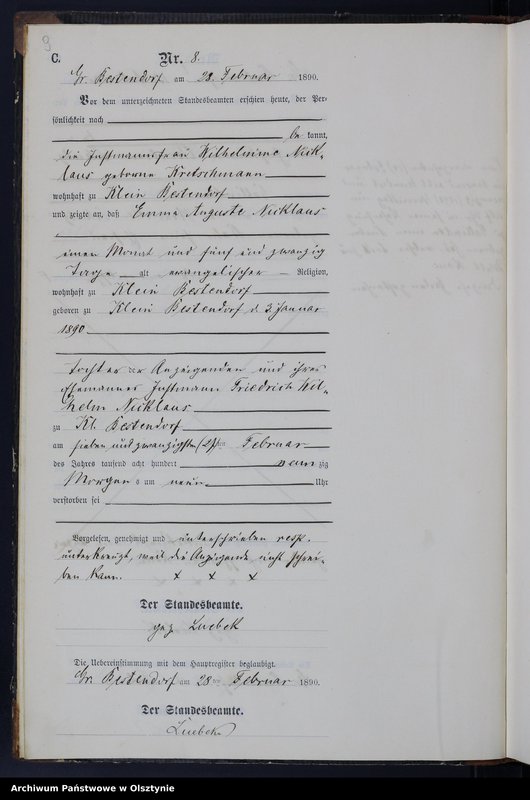 9
C.
Nr. 8.
Gr. Bestendorf am 28. Februar 1890.
Vor dem unterzeichneten Standesbeamten erschien heute, der Per-
sönlichkeit nach
be kannt,
die Instmannsfrau Wilhelmine Nick-
laus geborne Kretschmann
wohnhaft zu Klein Bestendorf
und zeigte an, daß Emma Auguste Nicklaus
einen Monat und fünf und zwanzig
Tage alt evangelischer Religion,
wohnhaft zu Klein Bestendorf
geboren zu Klein Bestendorf d. 3. Januar
1890
Tochter der Anzeigenden und ihres
Ehemannes Instmann Friedrich Wil-
helm Nicklaus
zu Kl. Bestendorf
am sieben und zwanzigsten (27ten Februar
des Jahres tausend acht hundert neun zig
Morgens um neun Uhr
verstorben sei
Vorgelesen, genehmigt und unterschrieben resp.
unterkreuzt, weil die Anzeigende nicht schrei-
ben kann. x x x
Der Standesbeamte.
gez. Luebek
Die Uebereinstimmung mit dem Hauptregister beglaubigt.
Gr. Bestendorf am 28ten Februar 1890.
Der Standesbeamte.
Luebek
Archiwum Państwowe w Olsztynie